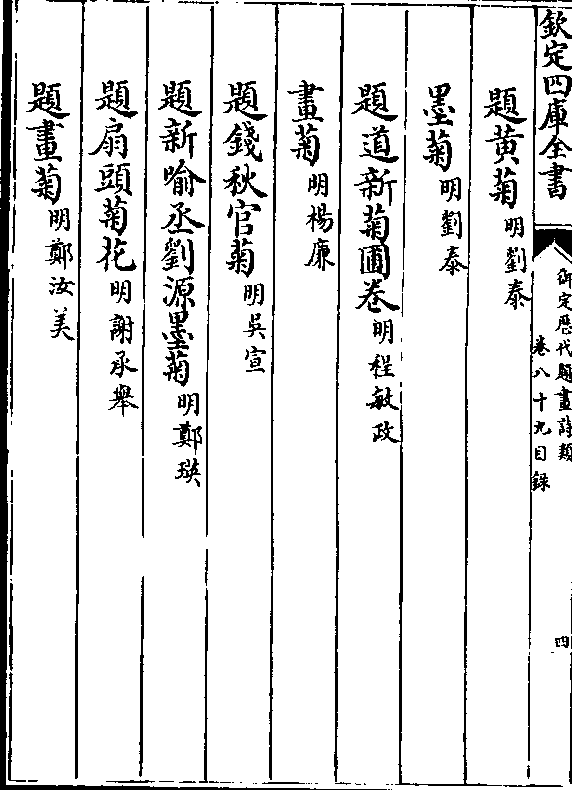 欽定四庫全書
御定歴代題畫詩類
卷八十九目録
四
題黄菊明劉泰
墨菊明劉泰
題道新菊圃卷明程敏政
畫菊明楊廉
題錢秋官菊明吳宣
題新喻丞劉源墨菊明鄭瑛
題扇頭菊花明謝承舉
題畫菊明鄭汝美